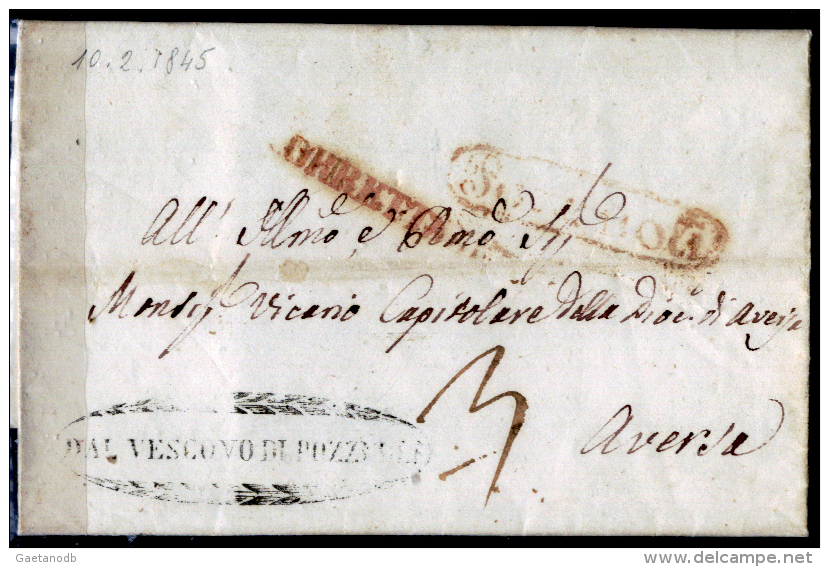 10.2.1845
DIRETTA
All' Illmo e Rmo Sig
Monsig Vicario Capitolare della Dioc. di Aversa
3
Aversa
DAL VESCOVO DI POZZUOLI
Gaetanodb
delcampe.net